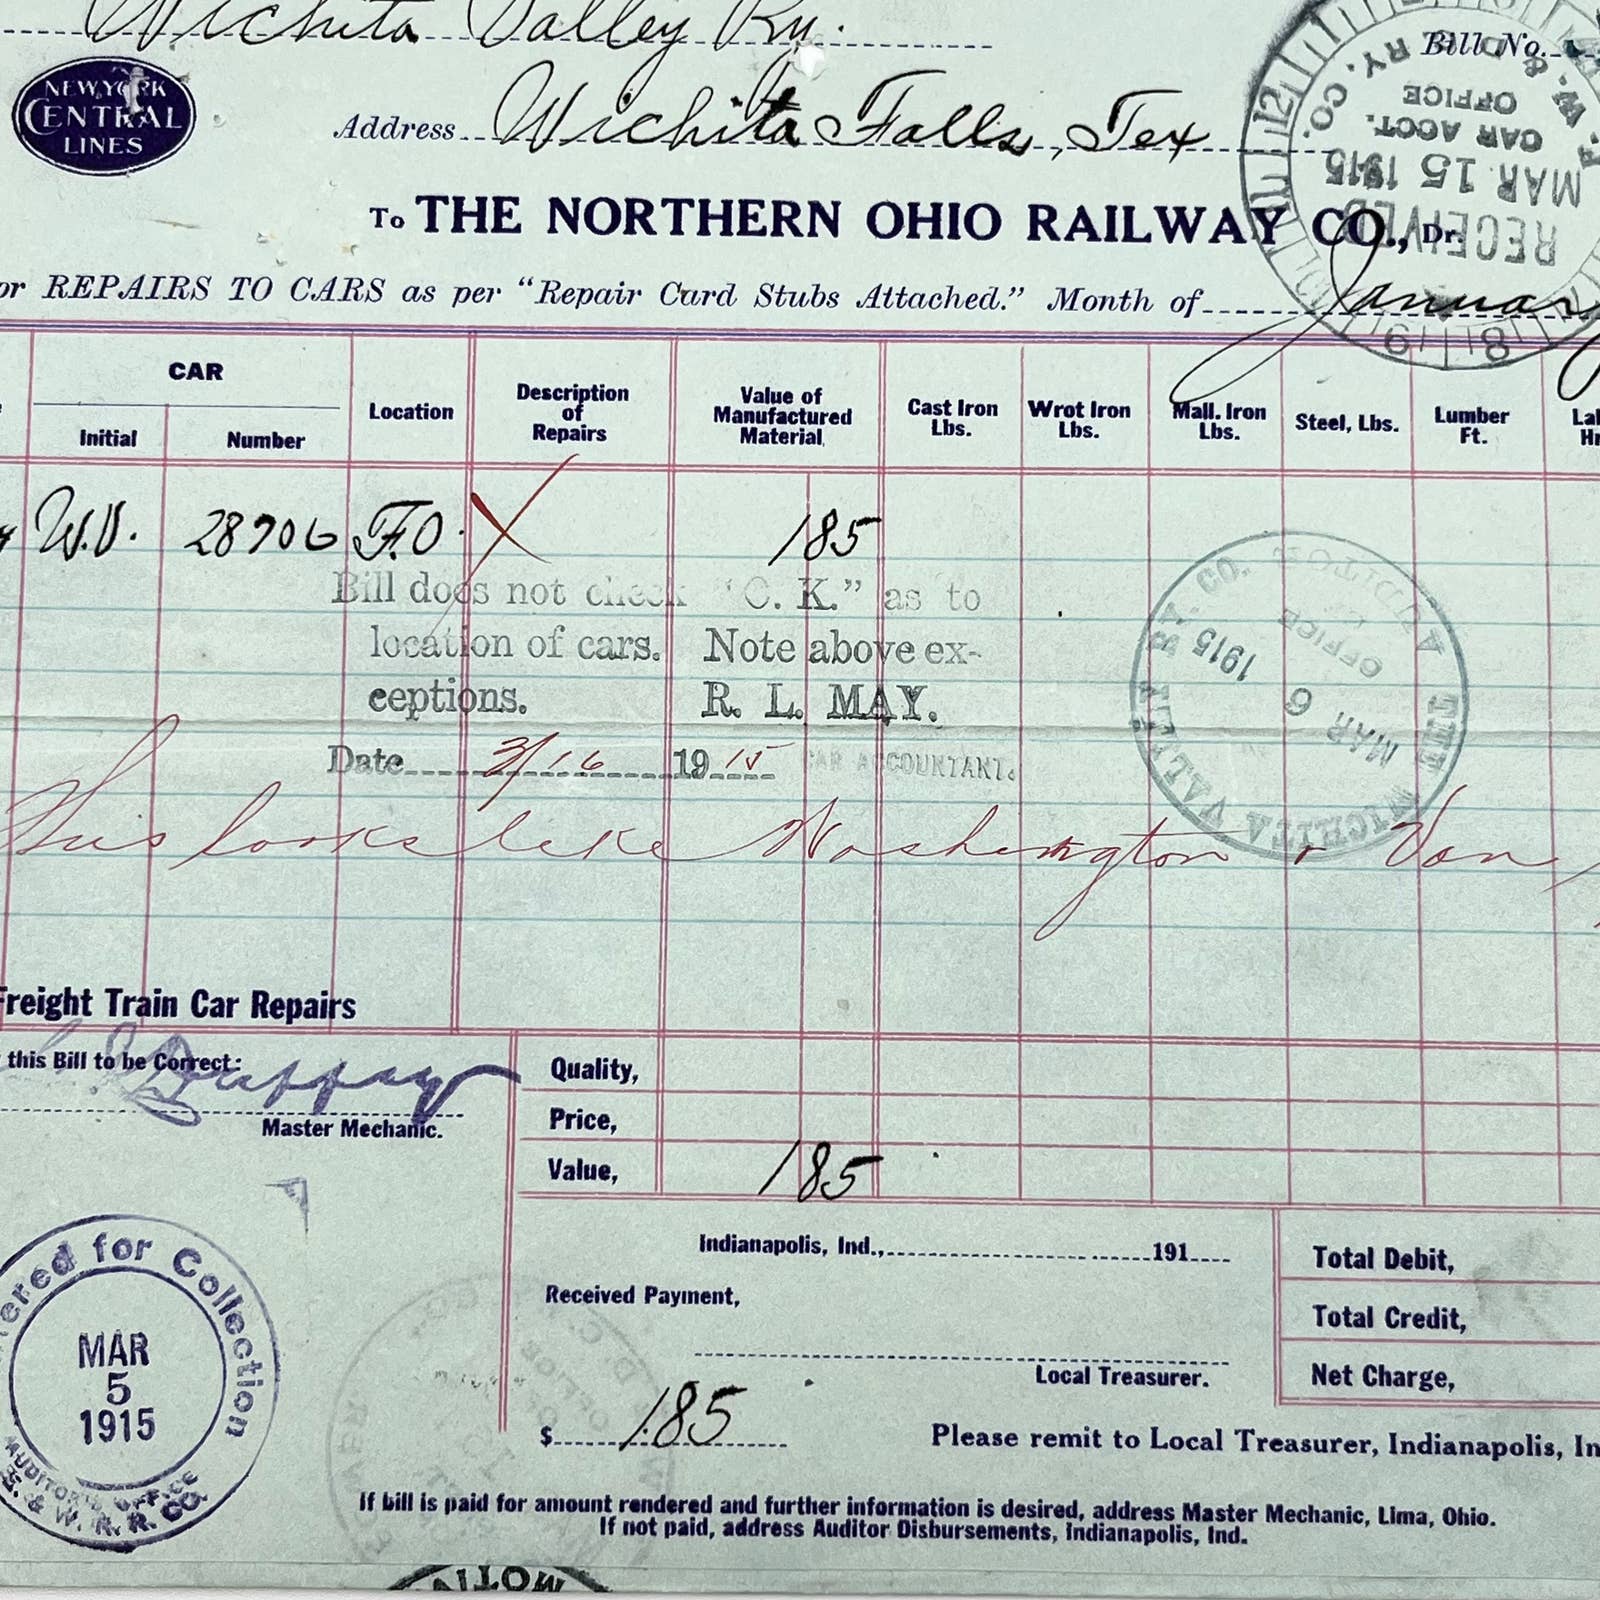 Wichita Valley Ry.
Bill No.
NEW YORK
CENTRAL
LINES
Address Wichita Falls, Tex
To THE NORTHERN OHIO RAILWAY CO., Dr.
RECEIVED
MAR 15 1915
CAR ACCT.
OFFICE
& D. C. RY. CO.
12
11
9
8
or REPAIRS TO CARS as per “Repair Card Stubs Attached.” Month of Januar
CAR
Initial
Number
Location
Description
of
Repairs
Value of
Manufactured
Material,
Cast Iron
Lbs.
Wrot Iron
Lbs.
Mall. Iron
Lbs.
Steel, Lbs.
Lumber
Ft.
W.V. 28706 F.O. 185
Bill does not check "O. K." as to
location of cars. Note above ex-
ceptions. R. L. MAY.
Date 3/16 1915 CAR ACCOUNTANT.
THE WICHITA VALLEY RY. CO.
AUDITOR
OFFICE
MAR 6 1915
This looks like Washington & Van
Freight Train Car Repairs
this Bill to be Correct:
Duffay
Master Mechanic.
Quality,
Price,
Value, 185
ered for Collection
MAR
5
1915
AUDITOR'S OFFICE
E. & W. R. R. CO.
Indianapolis, Ind., 191
Received Payment,
Local Treasurer.
$ 1.85
Total Debit,
Total Credit,
Net Charge,
Please remit to Local Treasurer, Indianapolis, In
If bill is paid for amount rendered and further information is desired, address Master Mechanic, Lima, Ohio.
If not paid, address Auditor Disbursements, Indianapolis, Ind.